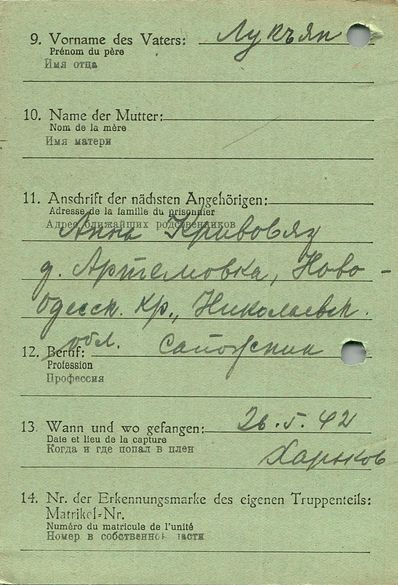 9. Vorname des Vaters: Лукъян
Prénom du père
Имя отца
10. Name der Mutter:
Nom de la mère
Имя матери
11. Anschrift der nächsten Angehörigen:
Adresse de la famille du prisonnier
Адрес ближайших родственников
Анна Кривовяз
д. Артемовка, Ново-
Одесск. кр., Николаевск.
обл.
12. Beruf: Сапожник
Profession
Профессия
13. Wann und wo gefangen: 26.5.42
Date et lieu de la capture
Когда и где попал в плен
Харьков
14. Nr. der Erkennungsmarke des eigenen Truppenteils:
Matrikel-Nr.
Numéro du matricule de l'unité
Номер в собственной части